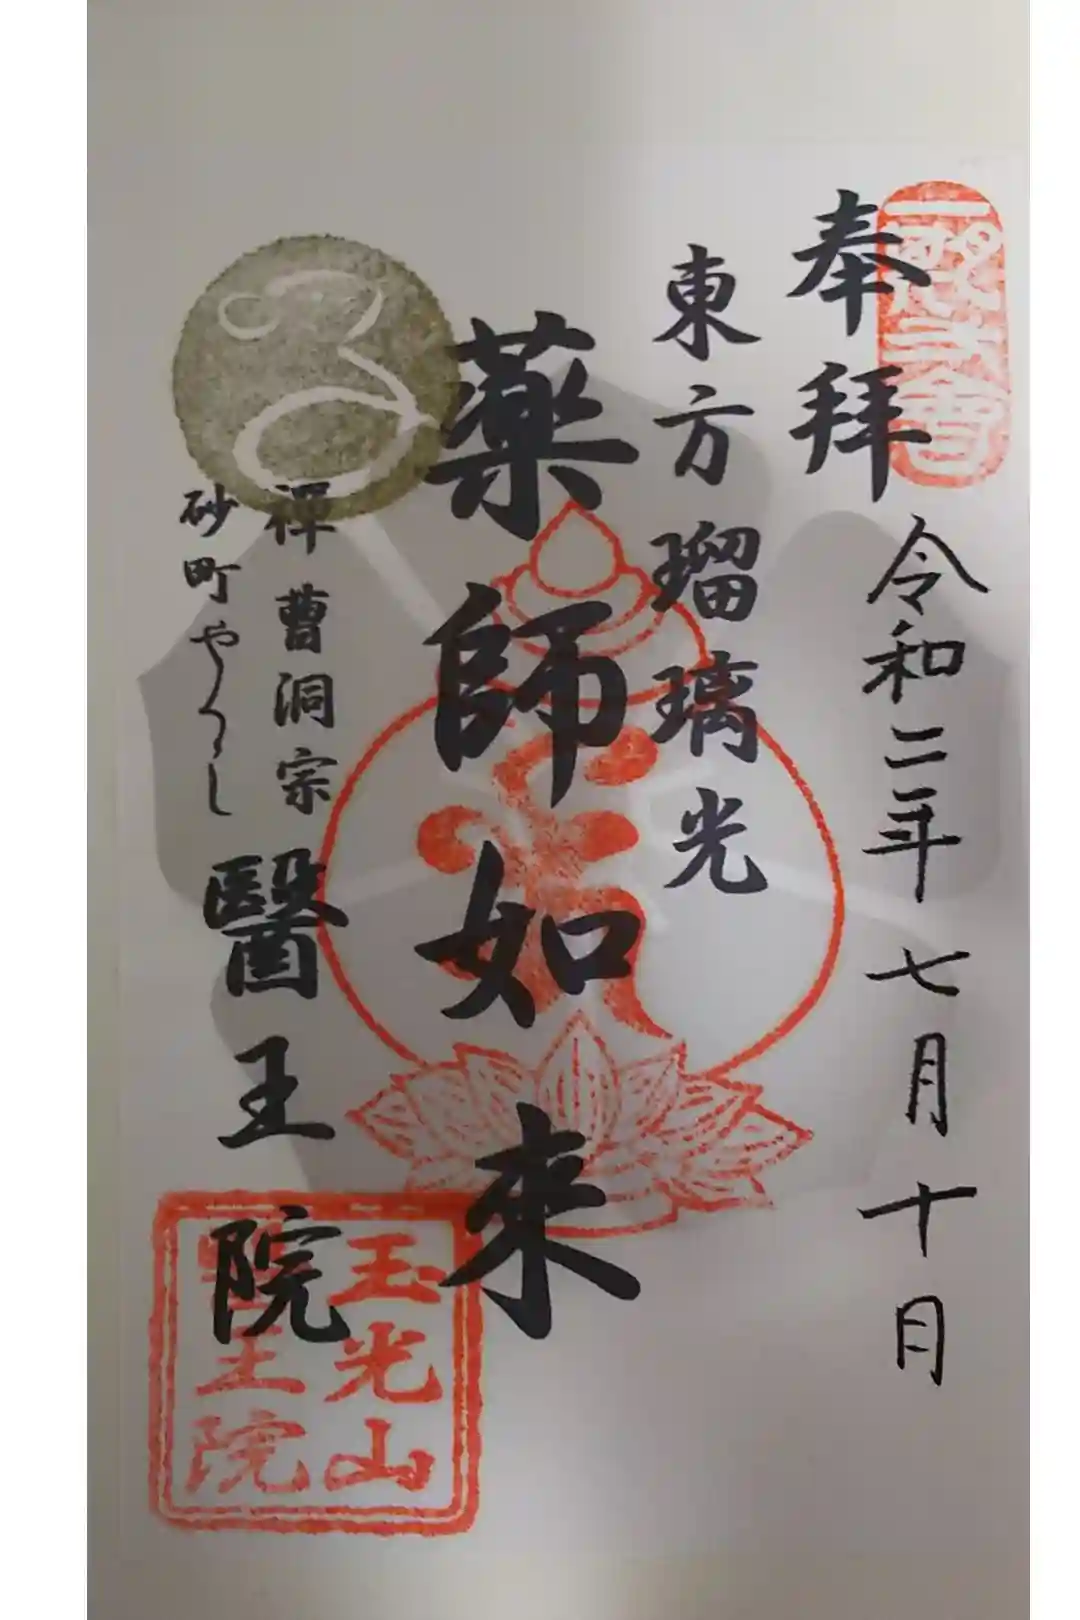 奉拝
令和二年七月十日
東方瑠璃光
薬師如来
禅曹洞宗
醫王院
砂町やくし
玉光山
醫王院